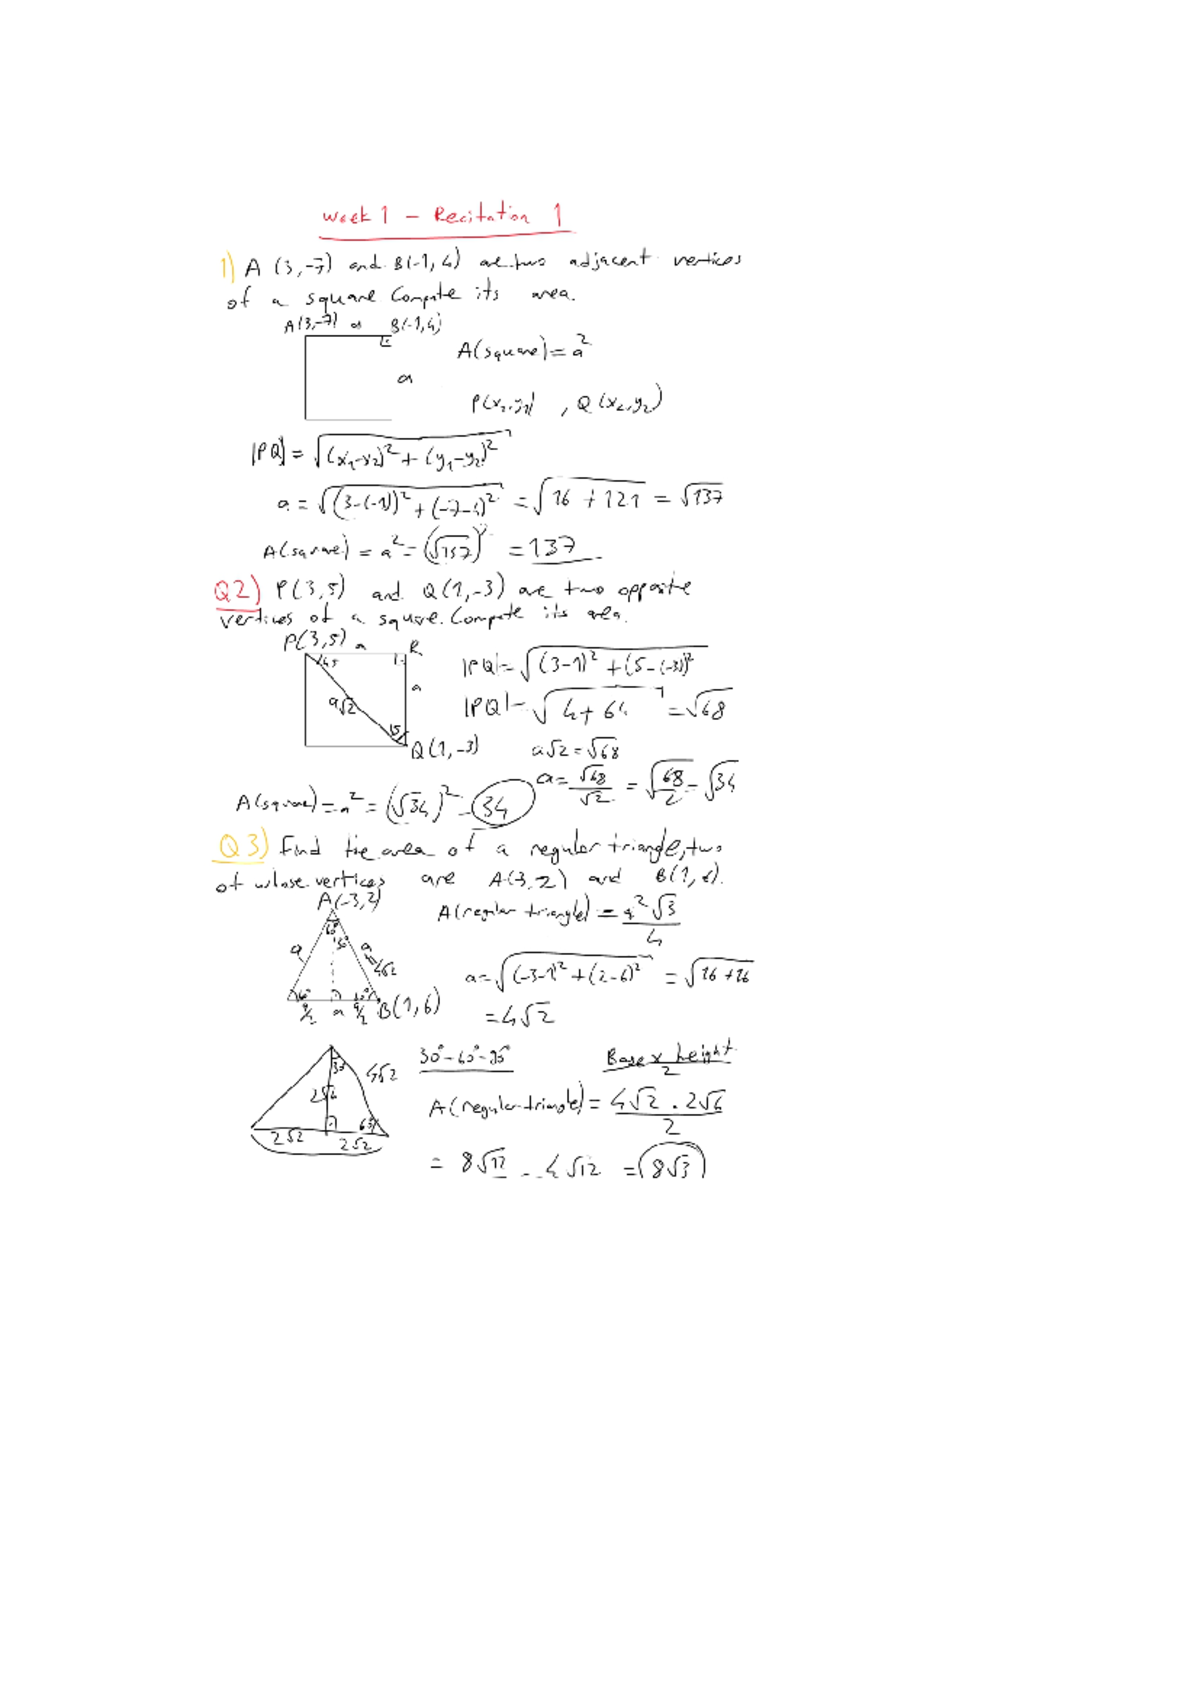 Week 1 - Recitation 1
1) A (3,-7) and B(-1, 4) are two adjacent vertices
of a square. Compute its area.
A(3,-7) a B(-1,4)
A(square) = a²
a
P(x₂,y₂), Q(x₂,y₂)
|PQ| = √((x₁-x₂)² + (y₁-y₂)²)
a = √((3-(-1))² + (-7-4)²) = √(16 + 121) = √137
A(square) = a² = (√137)² = 137
Q2) P(3,5) and Q(1,-3) are two opposite
vertices of a square. Compute its area.
P(3,5) a R
45
|PQ| = √((3-1)² + (5-(-3))²)
a√2
a
|PQ| = √(4 + 64) = √68
Q(1,-3)
a√2 = √68
a = √68/√2 = √(68/2) = √34
A(square) = a² = (√34)² = 34
Q3) Find the area of a regular triangle, two
of whose vertices are A(3,2) and B(1,6).
A(-3,2)
A(regular triangle) = a²√3/4
60°
30°
a
a=4√2
a = √((-3-1)² + (2-6)²) = √(16+16)
60°
60°
a/2 a a/2 B(1,6)
= 4√2
30°-60°-90°
Base x height/2
30
4√2
A(regular triangle) = (4√2 . 2√6)/2
60
2√2 2√2
= 8√12/2 = 4√12 = 8√3